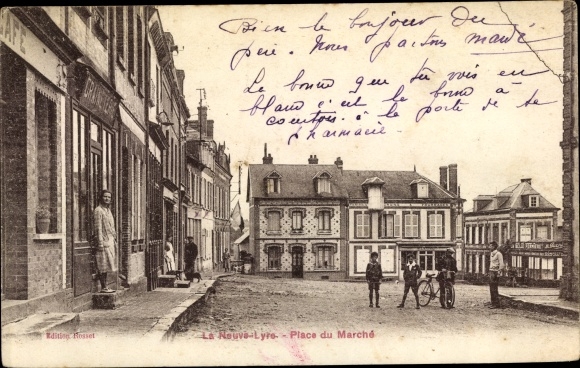 Bien le bonjour du
père. Nous partons mardi
La bonne que tu vois en
blanc c'est la bonne à
à la porte de sa
pharmacie.
CAFÉ
Edition Bosset
La Neuve-Lyre. - Place du Marché